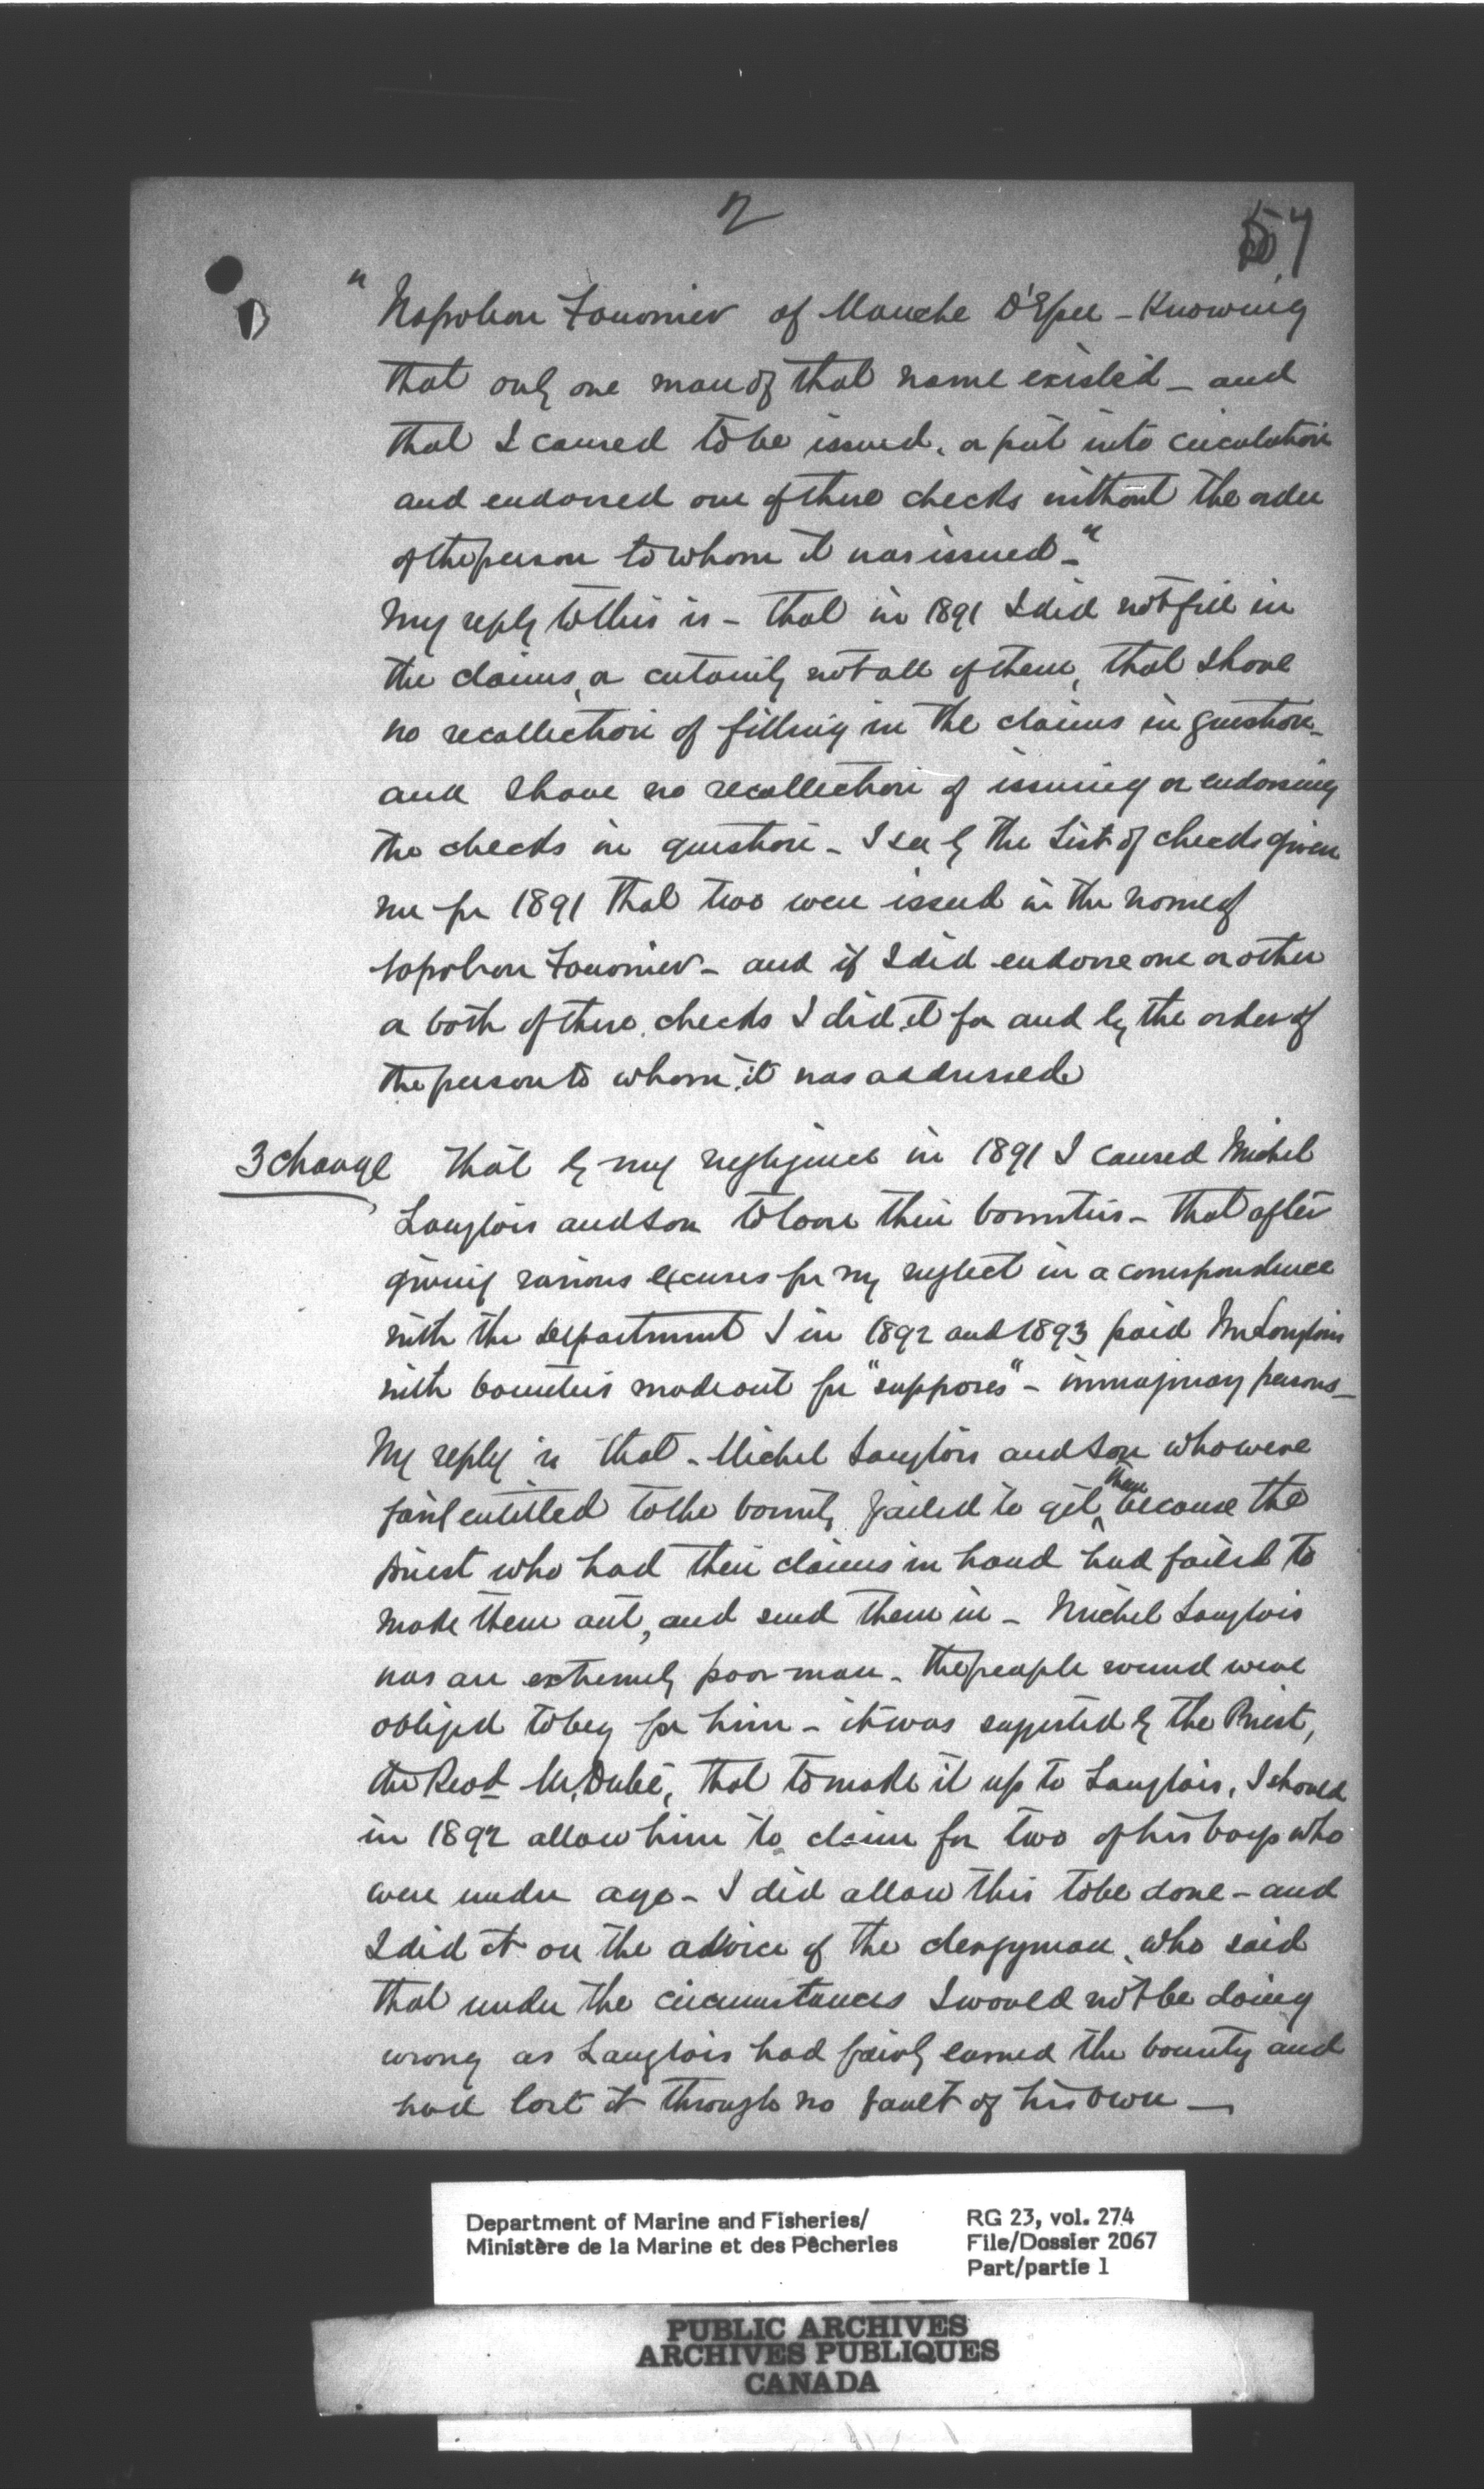 2
57
" Napoleon Fournier of Manche D'Epee - Knowing
that only one man of that name existed - and
that I caused to be issued, or put into circulation
and endorsed one of these checks without the order
of the person to whom it was issued - "
My reply to this is - that in 1891 I did not fill in
the claims, or certainly not all of them, that I have
no recollection of filling in the claims in question -
and I have no recollection of issuing or endorsing
the checks in question - I see by the List of checks given
me for 1891 that two were issued in the name of
Napoleon Fournier - and if I did endorse one or other
or both of these checks I did it for and by the order of
the person to whom it was addressed
3 charge That by my negligence in 1891 I caused Michel
Langlois and son to loose their bounties - that after
giving various excuses for my neglect in a correspondence
with the Department I in 1892 and 1893 paid M Langlois
with bounties made out for "supposes" - immaginary persons -
My reply is that - Michel Langlois and son who were
fairly entitled to the bounty failed to get them because the
priest who had their claims in hand had failed to
make them out, and send them in - Michel Langlois
was an extremely poor man - the people round were
obliged to beg for him - it was suggested by the Priest,
the Revd Mr. Dubé, that to make it up to Langlois, I should
in 1892 allow him to claim for two of his boys who
were under age - I did allow this to be done - and
I did it on the advice of the clergyman, who said
that under the circumstances I would not be doing
wrong as Langlois had fairly earned the bounty and
had lost it through no fault of his own -
Department of Marine and Fisheries/
Ministère de la Marine et des Pêcheries
RG 23, vol. 274
File/Dossier 2067
Part/partie 1
PUBLIC ARCHIVES
ARCHIVES PUBLIQUES
CANADA